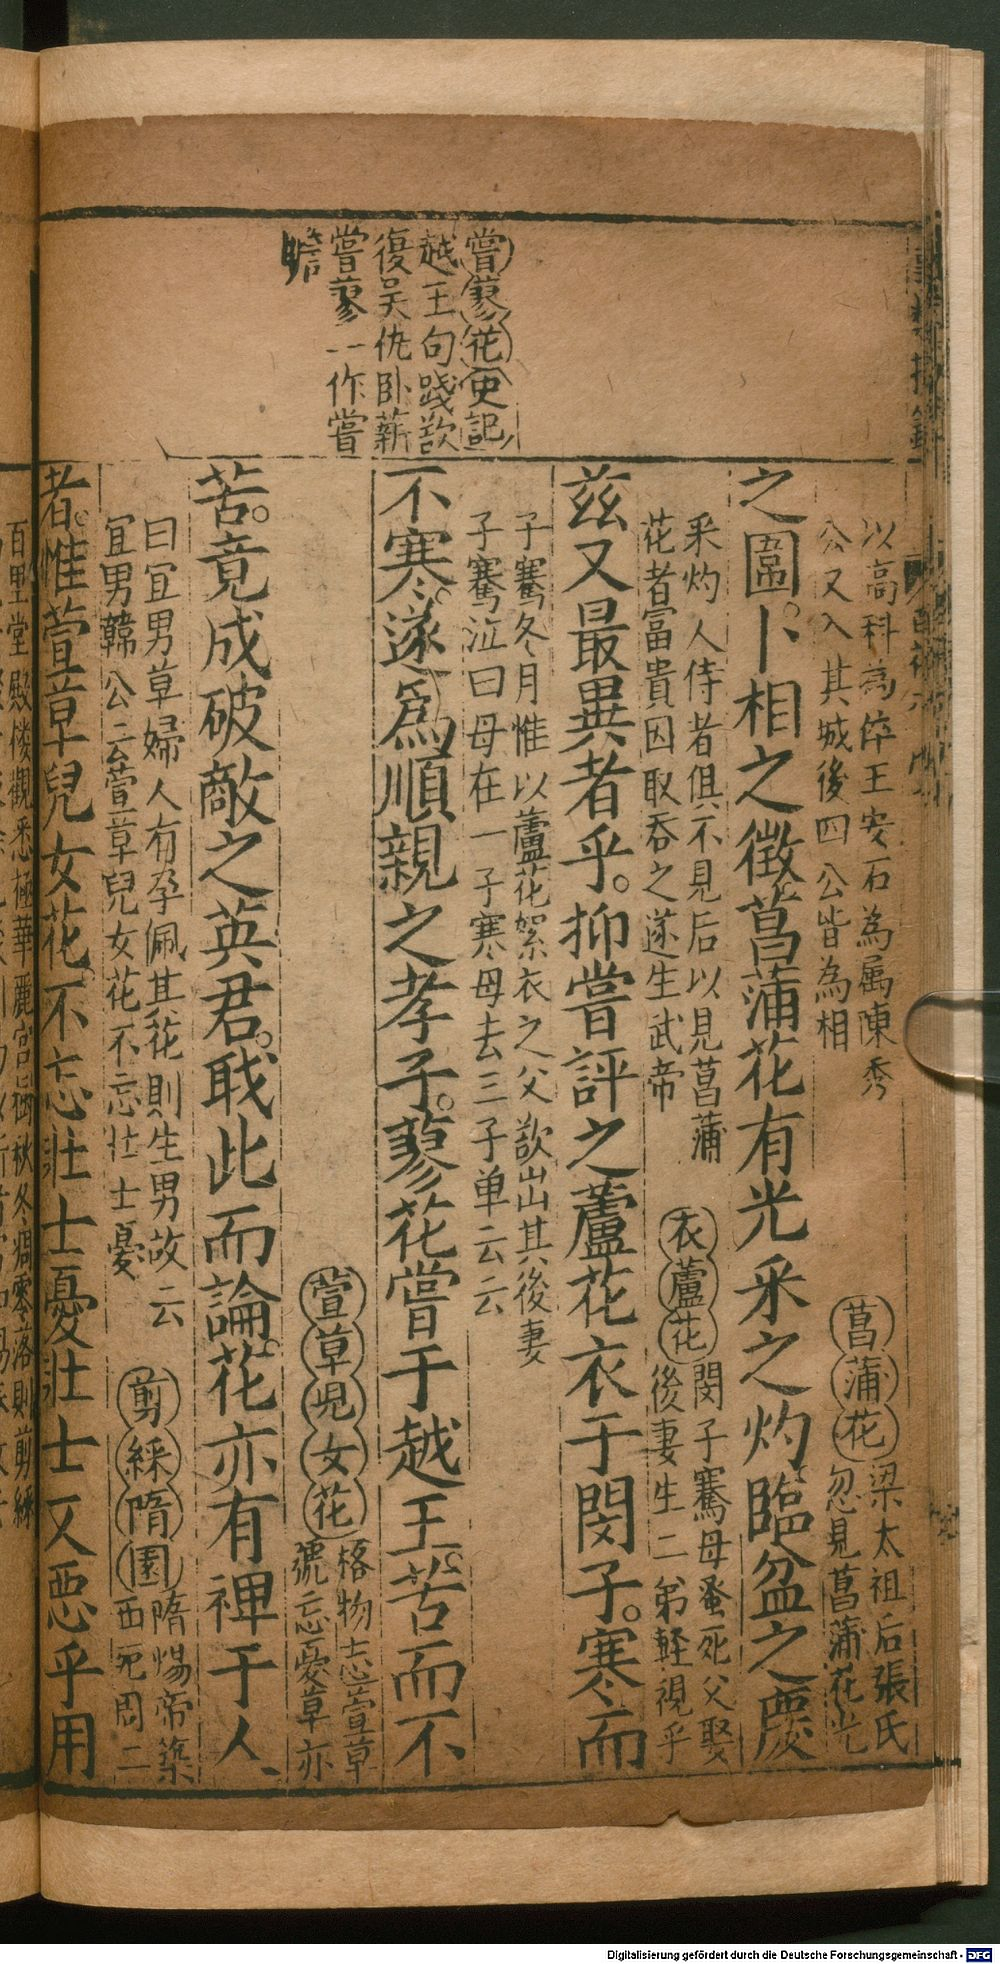 嘗蓼花史記
越王句踐欲
復吴仇卧薪
嘗蓼一作嘗
膽
以高科為倅王安石為属陳秀
公又入其城後四公皆為相
菖蒲花梁太祖后張氏
忽見菖蒲花光
之圍卜相之徵菖蒲花有光采之灼臨盆之慶
采灼人侍者俱不見后以見菖蒲
花者富貴因取吞之遂生武帝
衣蘆花閔子騫母蚤死父娶
後妻生二弟軽視乎
兹又最異者乎。抑嘗評之蘆花衣于閔子。寒而
子騫冬月惟以蘆花絮衣之父欲出其後妻
子騫泣曰母在一子寒母去三子单云云
不寒。遂為順親之孝子。蓼花嘗于越王。苦而不
苦。竟成破敵之英君。戢此而論。花亦有裨于人
萱草児女花格物志萱草
號忘憂草亦
曰宜男草婦人有孕佩其花則生男故云
宜男韓公云萱草兒女花不忘壮士憂
剪綵隋園隋煬帝築
西苑周二
者。惟萱草兒女花。不忘壯士憂壯士又惡乎用
百里堂殿楼觀悉極華麗宫樹秋冬凋零落則剪綵
Digitalisierung gefördert durch die Deutsche Forschungsgemeinschaft - DFG